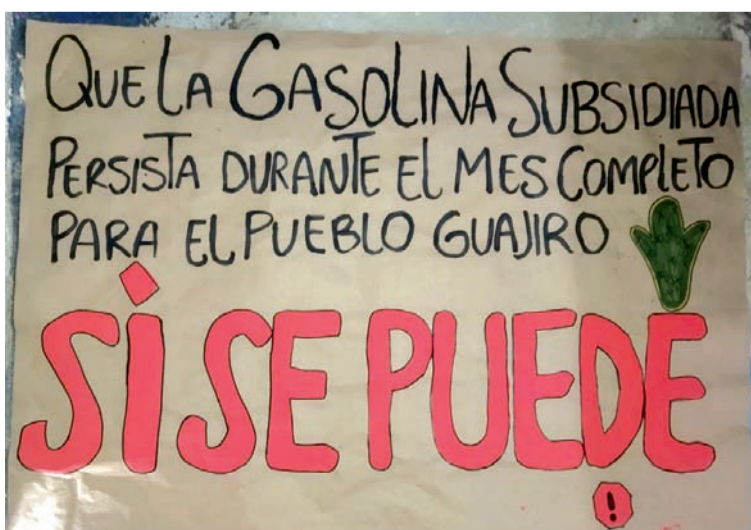 QUE LA GASOLINA SUBSIDIADA
PERSISTA DURANTE EL MES COMPLETO
PARA EL PUEBLO GUAJIRO
SI SE PUEDE
!